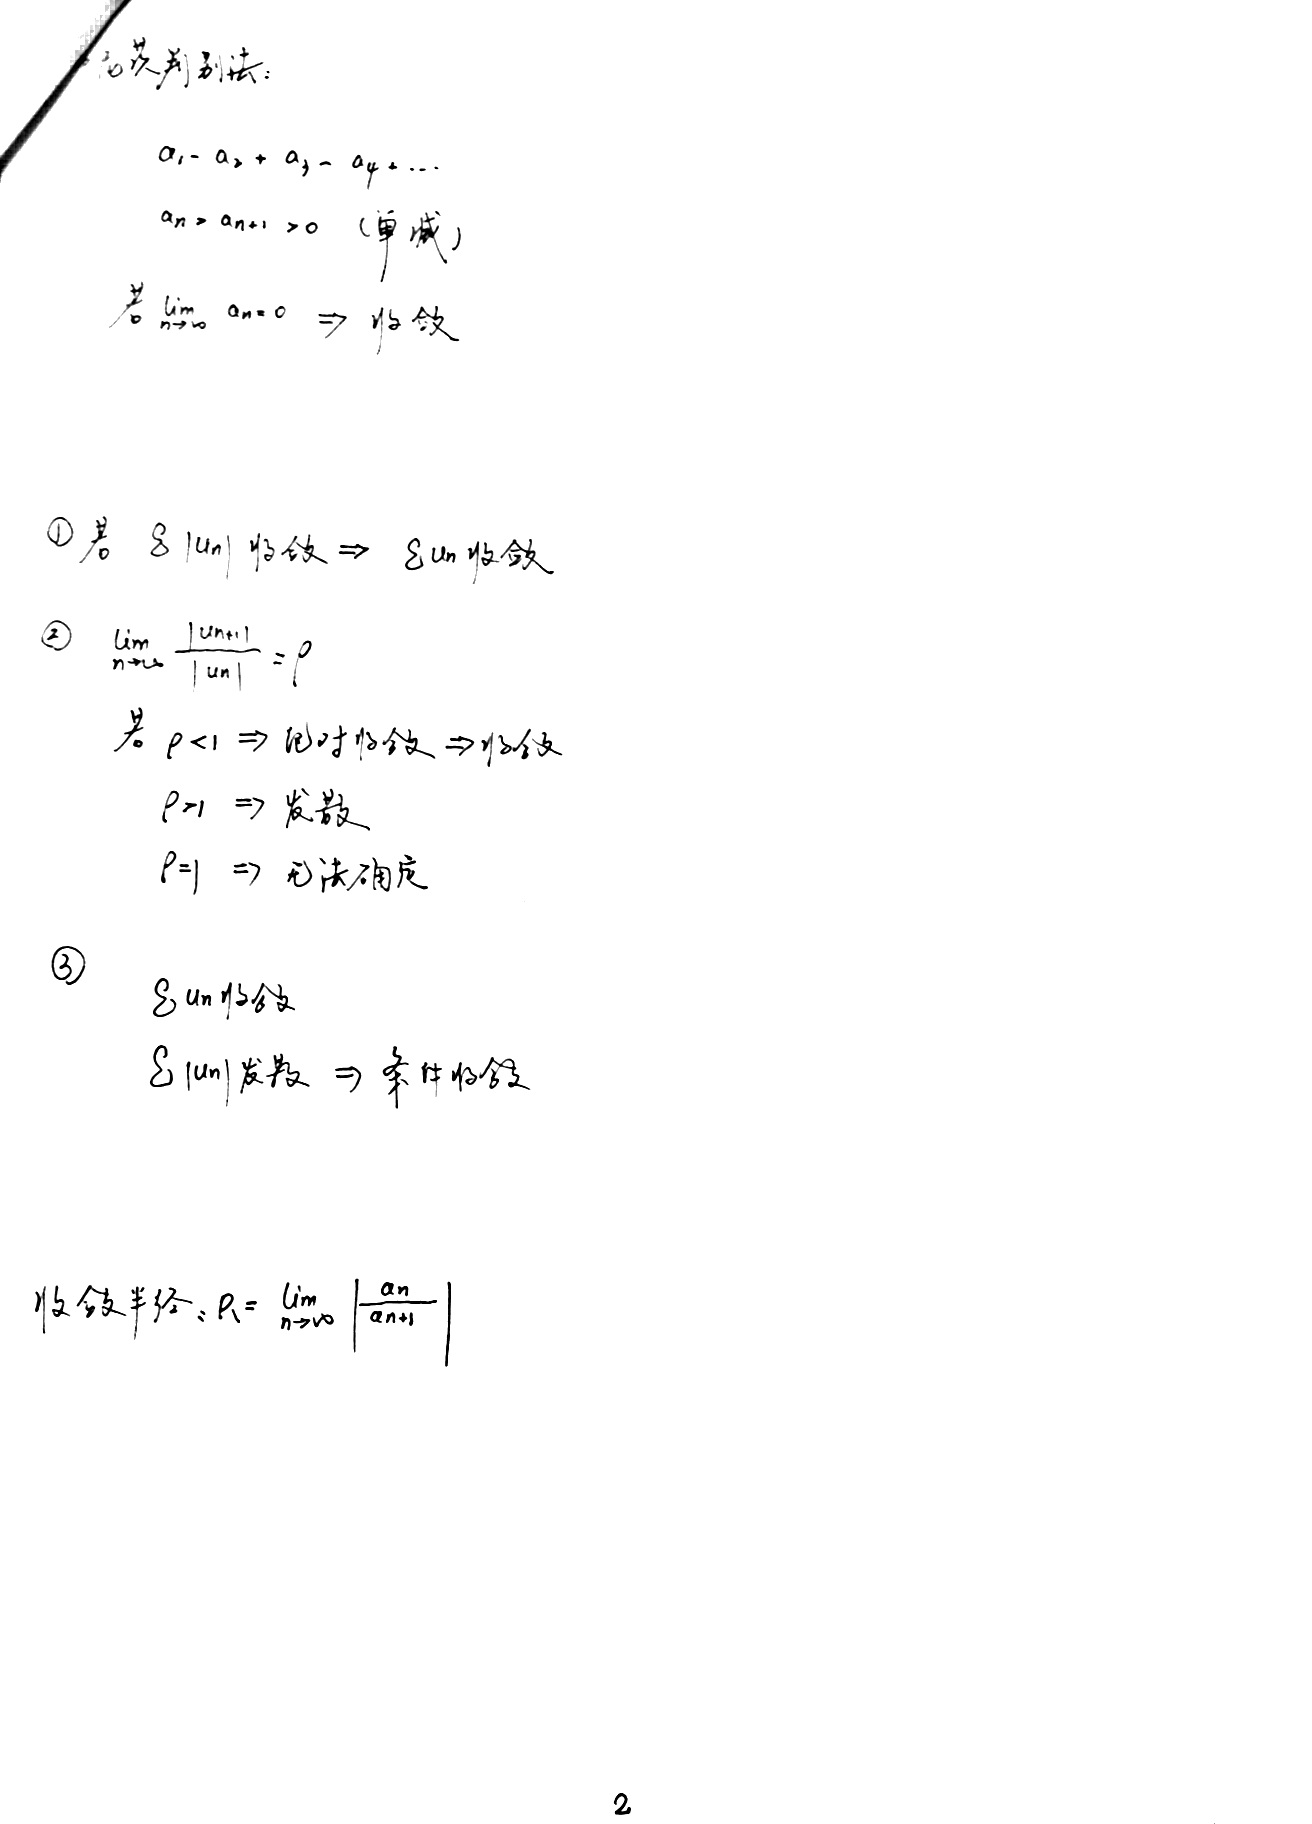 茨判别法：
a₁ - a₂ + a₃ - a₄ + ...
aₙ > aₙ₊₁ > 0 （单减）
若 lim n→∞ aₙ = 0 ⇒ 收敛
① 若 Σ|uₙ| 收敛 ⇒ Σuₙ 收敛
② lim n→∞ |uₙ₊₁| / |uₙ| = ρ
若 ρ<1 ⇒ 绝对收敛 ⇒ 收敛
ρ>1 ⇒ 发散
ρ=1 ⇒ 无法确定
③
Σuₙ 收敛
Σ|uₙ| 发散 ⇒ 条件收敛
收敛半径：R = lim n→∞ |aₙ / aₙ₊₁|
2